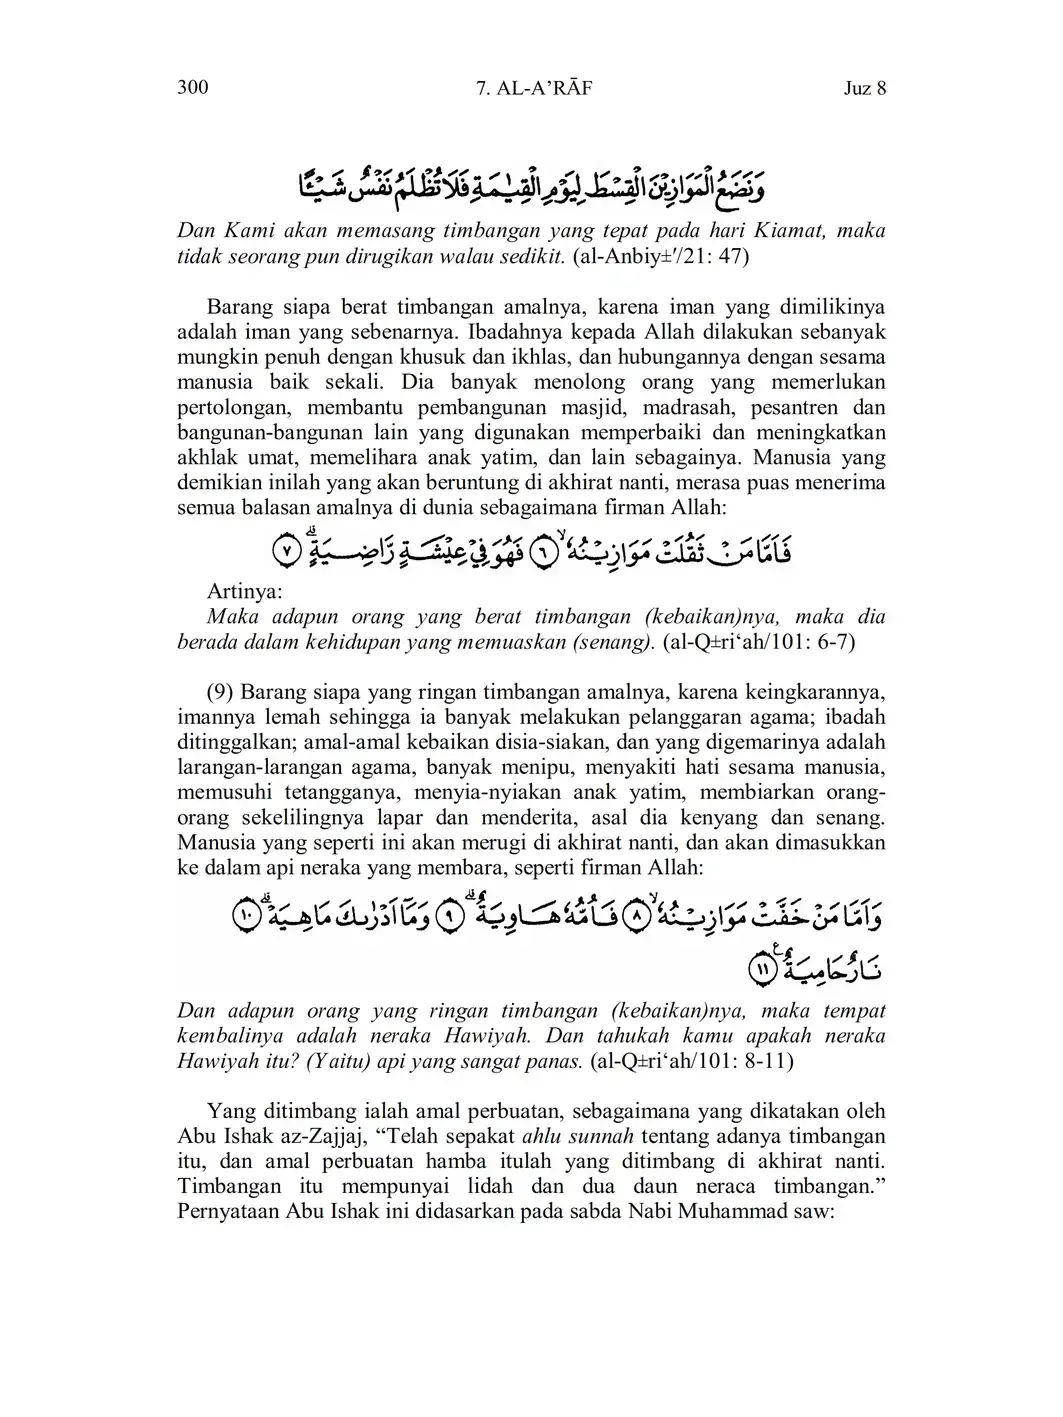 300 7. AL-A’RĀF Juz 8
وَنَضَعُ الْمَوَازِيْنَ الْقِسْطَ لِيَوْمِ الْقِيٰمَةِ فَلَا تُظْلَمُ نَفْسٌ شَيْـًٔا
Dan Kami akan memasang timbangan yang tepat pada hari Kiamat, maka
tidak seorang pun dirugikan walau sedikit. (al-Anbiy±'/21: 47)
Barang siapa berat timbangan amalnya, karena iman yang dimilikinya
adalah iman yang sebenarnya. Ibadahnya kepada Allah dilakukan sebanyak
mungkin penuh dengan khusuk dan ikhlas, dan hubungannya dengan sesama
manusia baik sekali. Dia banyak menolong orang yang memerlukan
pertolongan, membantu pembangunan masjid, madrasah, pesantren dan
bangunan-bangunan lain yang digunakan memperbaiki dan meningkatkan
akhlak umat, memelihara anak yatim, dan lain sebagainya. Manusia yang
demikian inilah yang akan beruntung di akhirat nanti, merasa puas menerima
semua balasan amalnya di dunia sebagaimana firman Allah:
فَاَمَّا مَنْ ثَقُلَتْ مَوَازِيْنُهٗۙ ٦ فَهُوَ فِيْ عِيْشَةٍ رَّاضِيَةٍۗ ٧
Artinya:
Maka adapun orang yang berat timbangan (kebaikan)nya, maka dia
berada dalam kehidupan yang memuaskan (senang). (al-Q±ri‘ah/101: 6-7)
(9) Barang siapa yang ringan timbangan amalnya, karena keingkarannya,
imannya lemah sehingga ia banyak melakukan pelanggaran agama; ibadah
ditinggalkan; amal-amal kebaikan disia-siakan, dan yang digemarinya adalah
larangan-larangan agama, banyak menipu, menyakiti hati sesama manusia,
memusuhi tetangganya, menyia-nyiakan anak yatim, membiarkan orang-
orang sekelilingnya lapar dan menderita, asal dia kenyang dan senang.
Manusia yang seperti ini akan merugi di akhirat nanti, dan akan dimasukkan
ke dalam api neraka yang membara, seperti firman Allah:
وَاَمَّا مَنْ خَفَّتْ مَوَازِيْنُهٗۙ ٨ فَاُمُّهٗ هَاوِيَةٌۗ ٩ وَمَآ اَدْرٰىكَ مَا هِيَهْۗ ١٠
نَارٌ حَامِيَةٌ ࣖ ١١
Dan adapun orang yang ringan timbangan (kebaikan)nya, maka tempat
kembalinya adalah neraka Hawiyah. Dan tahukah kamu apakah neraka
Hawiyah itu? (Yaitu) api yang sangat panas. (al-Q±ri‘ah/101: 8-11)
Yang ditimbang ialah amal perbuatan, sebagaimana yang dikatakan oleh
Abu Ishak az-Zajjaj, “Telah sepakat ahlu sunnah tentang adanya timbangan
itu, dan amal perbuatan hamba itulah yang ditimbang di akhirat nanti.
Timbangan itu mempunyai lidah dan dua daun neraca timbangan.”
Pernyataan Abu Ishak ini didasarkan pada sabda Nabi Muhammad saw: